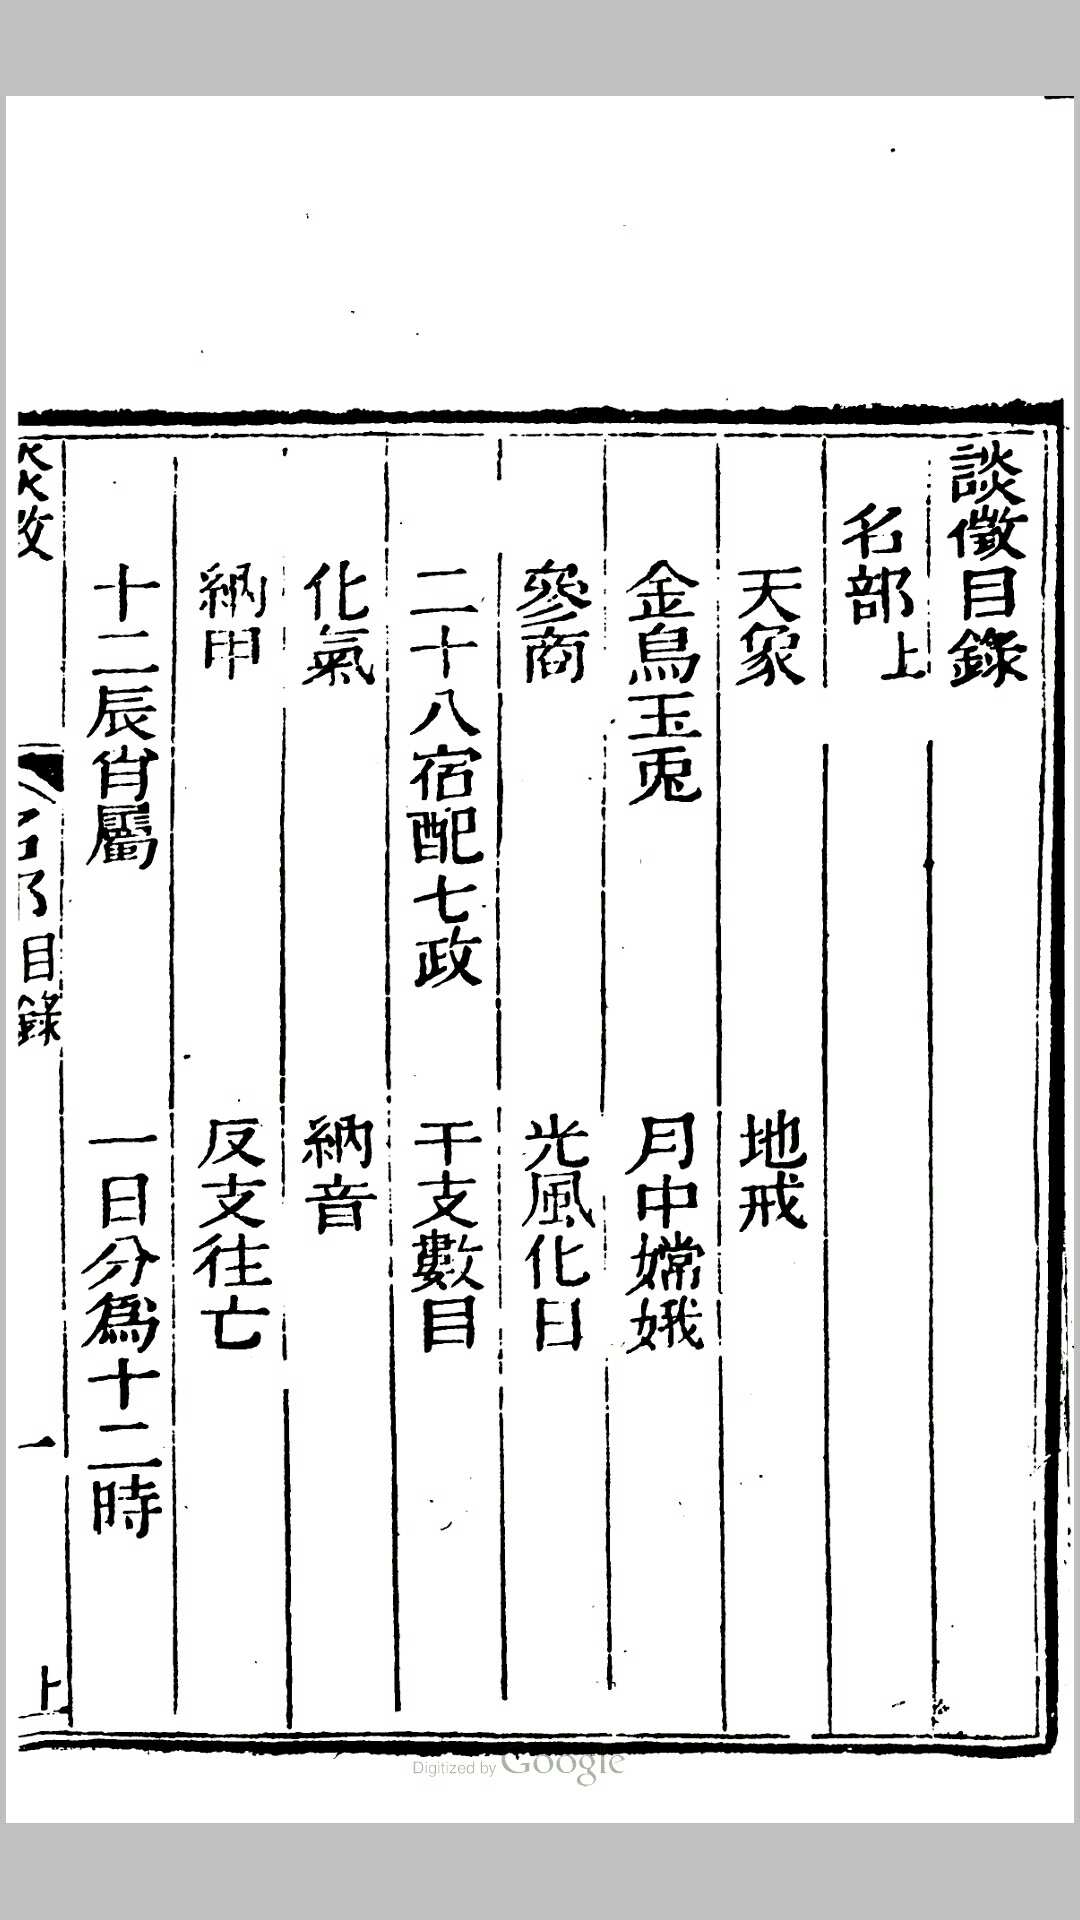 談徵目錄
名部上
天象 地戒
金烏玉兎 月中嫦娥
參商 光風化日
二十八宿配七政 干支數目
化氣 納音
納甲 反支往亡
十二辰肖屬 一日分爲十二時
目錄 一 上
Digitized by Google